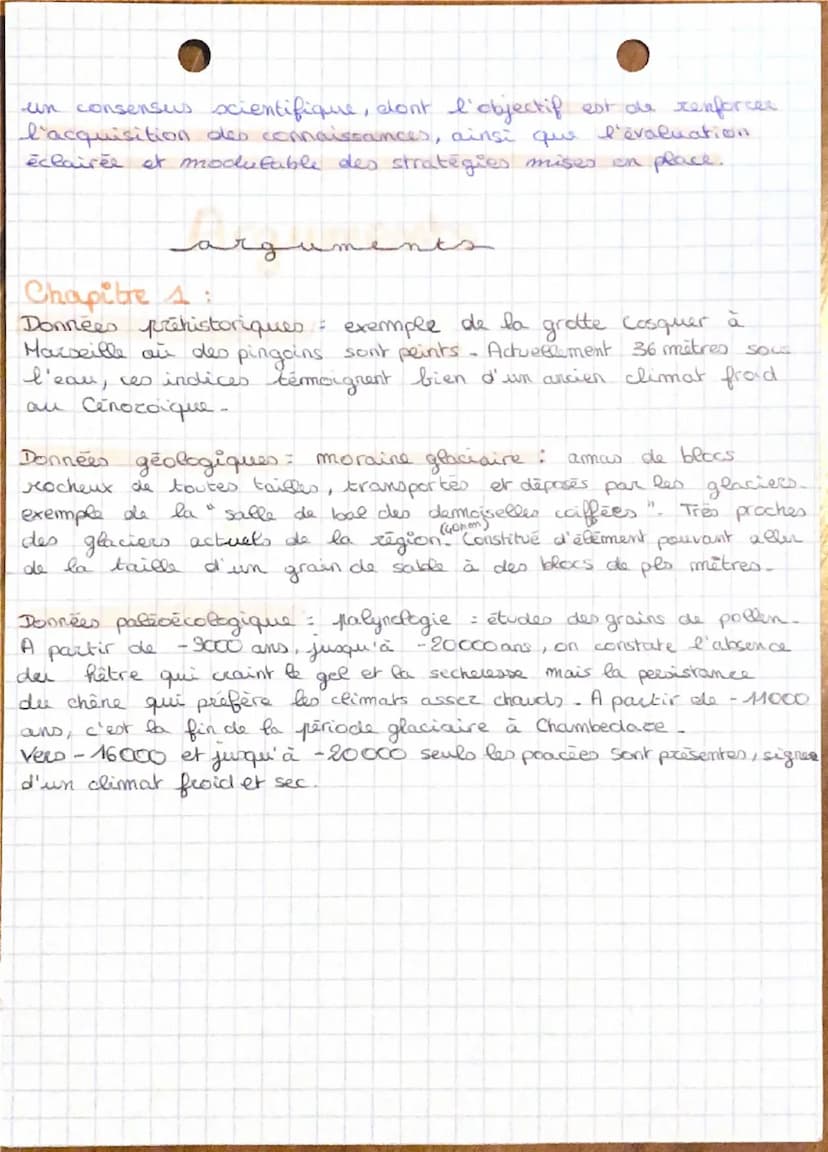 un consensus scientifique, dont l'objectif est de renforcer
l'acquisition des connaissances, ainsi que l'évaluation
éclairée et modulable des stratégies mises en place.
Arguments
arguments
Chapitre 1 :
Données préhistoriques : exemple de la grotte Cosquer à
Marseille où des pingoins sont peints. Actuellement 36 mètres sous
l'eau, ces indices témoignent bien d'un ancien climat froid
au Cénozoïque.
Données géologiques : moraine glaciaire : amas de blocs
rocheux de toutes tailles, transportés et déposés par les glaciers.
exemple de la "salle de bal des demoiselles coiffées". Très proches
(40km)
des glaciers actuels de la région. Constitué d'élément pouvant aller
de la taille d'un grain de sable à des blocs de pls mètres.
Données paléoécologique : palynologie : études des grains de pollen.
A partir de -9000 ans, jusqu'à -20000 ans, on constate l'absence
du hêtre qui craint le gel et la secheresse mais la persistance
du chêne qui préfère les climats assez chauds. A partir de -11000
ans, c'est la fin de la période glaciaire à Chambedaze.
Vers -16000 et jusqu'à -20000 seuls les poacées sont présentes, signe
d'un climat froid et sec.